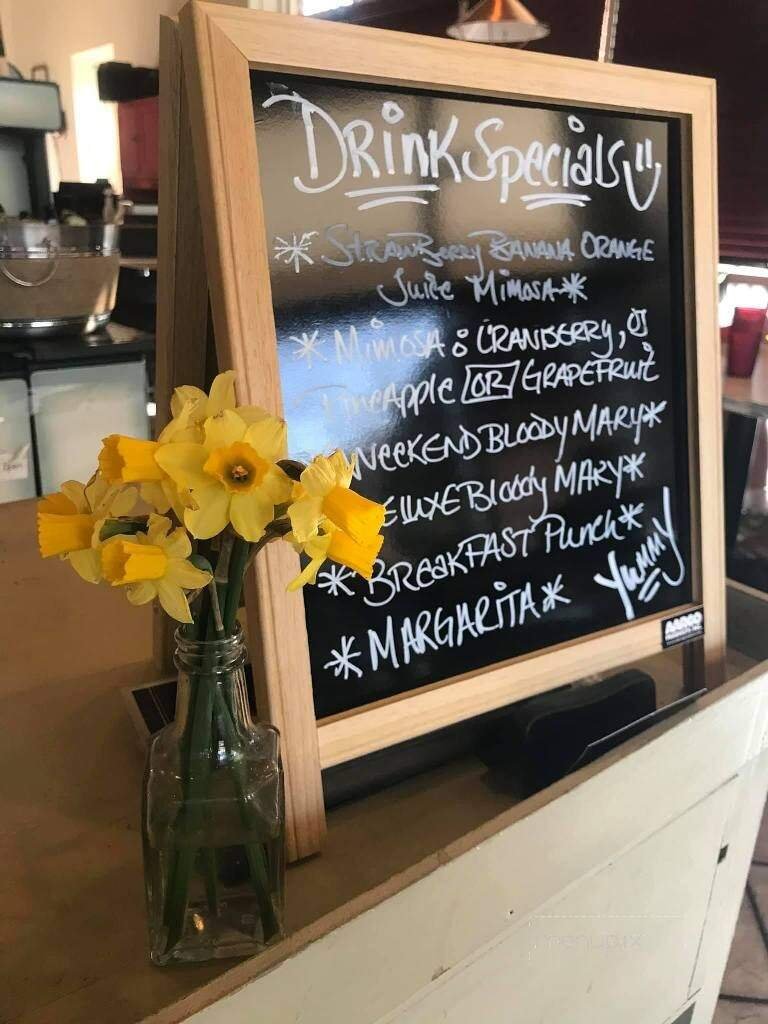 Drink Specials
* Strawberry Banana Orange
Juice Mimosa *
* Mimosa : Cranberry, OJ
Pineapple OR Grapefruit
Weekend Bloody Mary *
Deluxe Bloody Mary *
* Breakfast Punch *
* Margarita * Yummy
AARCO
menupix